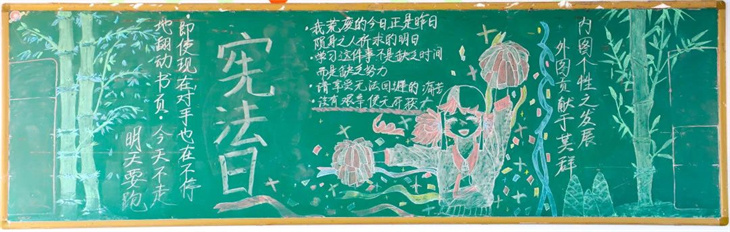 ·即使现在对手也在不停
地翻动书页·今天不走
明天要跑
宪法日
·我荒废的今日正是昨日
身之人祈求的明日
·学习这件事不是缺乏时间
而是缺乏努力
·请享受无法回避的痛苦
·没有艰辛便无所获
内图个性之发展
外图贡献于其群